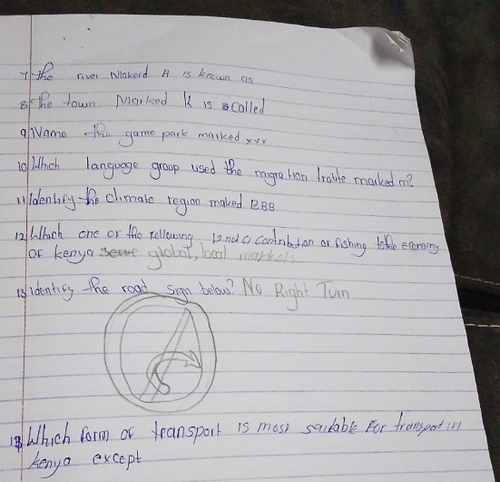 7 the river Marked A is known as
8 the town Marked K is called
9 Name the game park marked xxx
10 Which language group used the migration marked m?
11 Identify the climate region maked BBB
12 Which one of the following is not a contribution of fishing to the economy
of kenya serve global, local markets
13 identify the road sign below? No Right Turn
13 Which form of transport is most suitable for transport in
kenya except